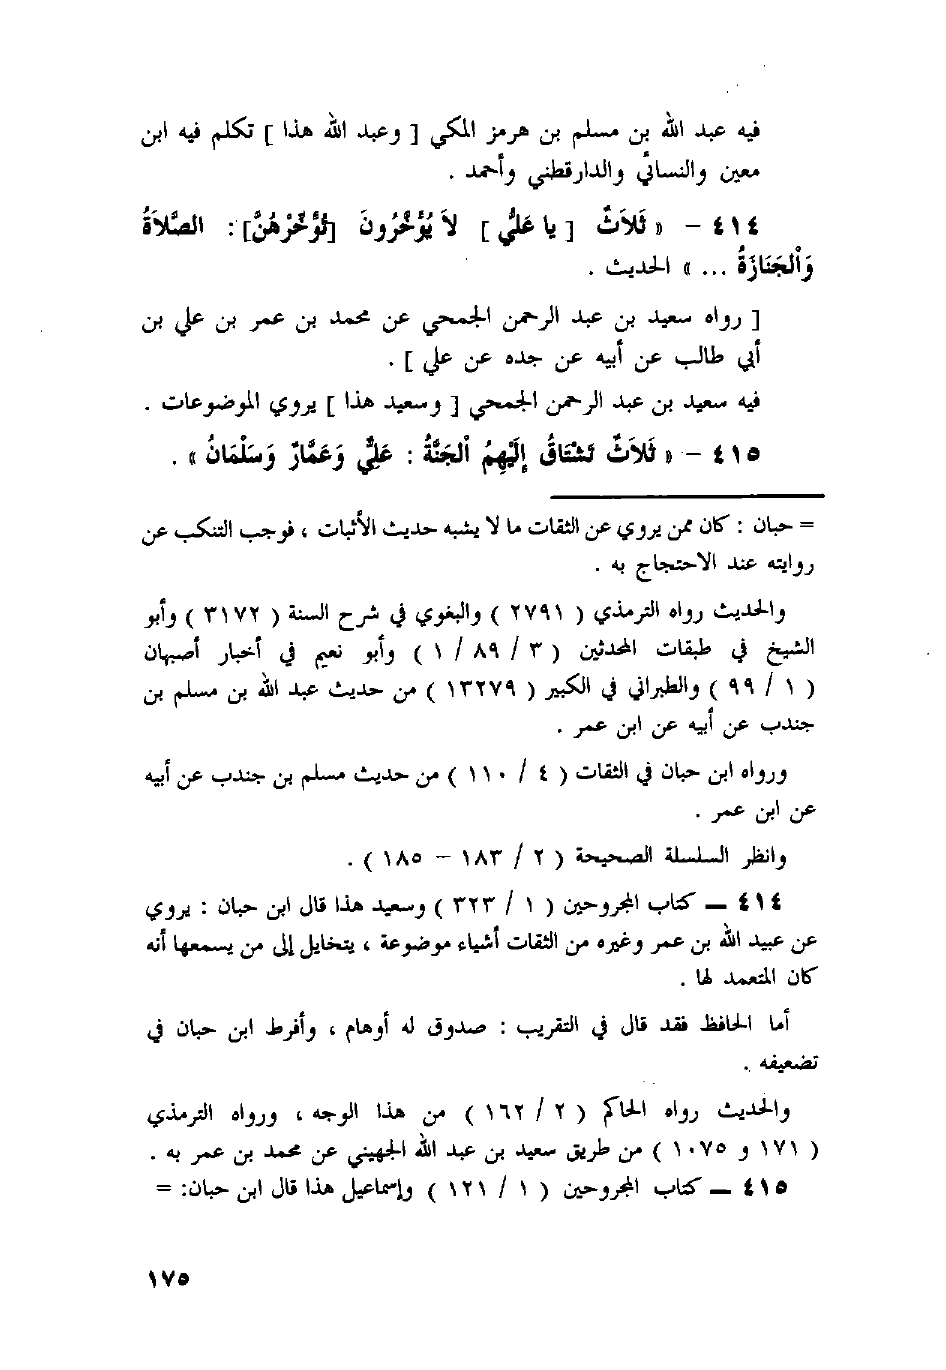 فيه عبد الله بن مسلم بن هرمز المكي [ وعبد الله هذا ] تكلم فيه ابن
معين والنسائي والدارقطني وأحمد .
٤١٤ – « ثَلاَثٌ [ يا عَلُّي ] لاَ يُؤَخَّرُونَ [تُؤَّخِّرْهُنَّ]: الصَّلاَةُ
وَاْلجَنَازَةُ ... » الحديث .
[ رواه سعيد بن عبد الرحمن الجمحي عن محمد بن عمر بن علي بن
أبي طالب عن أبيه عن جده عن علي ] .
فيه سعيد بن عبد الرحمن الجمحي [ وسعيد هذا ] يروي الموضوعات .
٤١٥ – « ثَلاَثٌ تَشْتَاقُ إِلَيْهِمُ اْلجَنَّةُ : عَلِيٌّ وَعَمَّارٌ وَسَلْمَانُ » .
= حبان : كان ممن يروي عن الثقات ما لا يشبه حديث الأثبات ، فوجب التنكب عن
روايته عند الاحتجاج به .
والحديث رواه الترمذي ( ٢٧٩١ ) والبغوي في شرح السنة ( ٣١٧٢ ) وأبو
الشيخ في طبقات المحدثين ( ٣ / ٨٩ / ١ ) وأبو نعيم في أخبار أصبهان
( ١ / ٩٩ ) والطبراني في الكبير ( ١٣٢٧٩ ) من حديث عبد الله بن مسلم بن
جندب عن أبيه عن ابن عمر .
ورواه ابن حبان في الثقات ( ٤ / ١١٠ ) من حديث مسلم بن جندب عن أبيه
عن ابن عمر .
وانظر السلسلة الصحيحة ( ٢ / ١٨٣ – ١٨٥ ) .
٤١٤ – كتاب المجروحين ( ١ / ٣٢٣ ) وسعيد هذا قال ابن حبان : يروي
عن عبيد الله بن عمر وغيره من الثقات أشياء موضوعة ، يتخايل إلى من يسمعها أنه
كان المتعمد لها .
أما الحافظ فقد قال في التقريب : صدوق له أوهام ، وأفرط ابن حبان في
تضعيفه .
والحديث رواه الحاكم ( ٢ / ١٦٢ ) من هذا الوجه ، ورواه الترمذي
( ١٧١ و ١٠٧٥ ) من طريق سعيد بن عبد الله الجهيني عن محمد بن عمر به .
٤١٥ – كتاب المجروحين ( ١ / ١٢١ ) وإسماعيل هذا قال ابن حبان: =
١٧٥